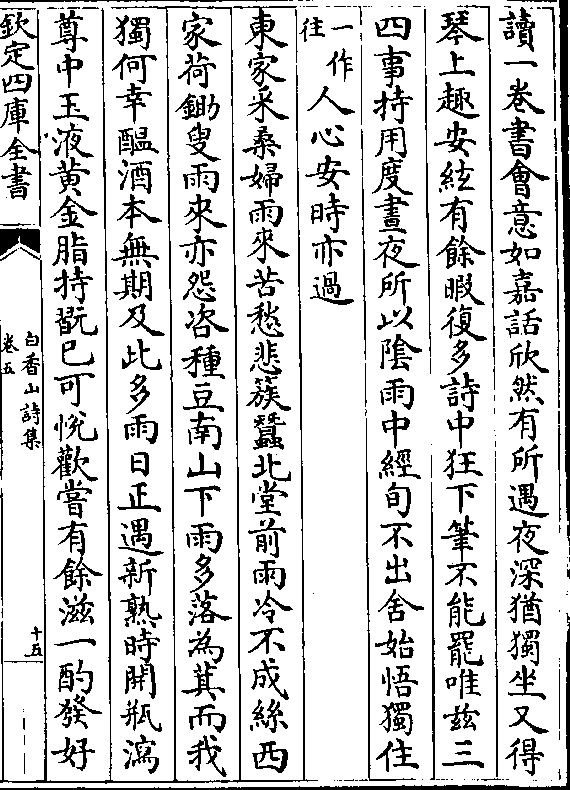 讀一卷書會意如嘉話欣然有所遇夜深猶獨坐又得
琴上趣安絃有餘暇復多詩中狂下筆不能罷唯兹三
四事持用度晝夜所以隂雨中經旬不出舍始悟獨住
一作
往
人心安時亦過
東家采桑婦雨來苦愁悲蔟蠶北堂前雨冷不成絲西
家荷鋤叟雨來亦怨咨種豆南山下雨多落為萁而我
獨何幸醖酒本無期及此多雨日正遇新熟時開瓶瀉
尊中玉液黄金脂持翫已可悅歡嘗有餘滋一酌發好
欽定四庫全書
白香山詩集
卷五
十五